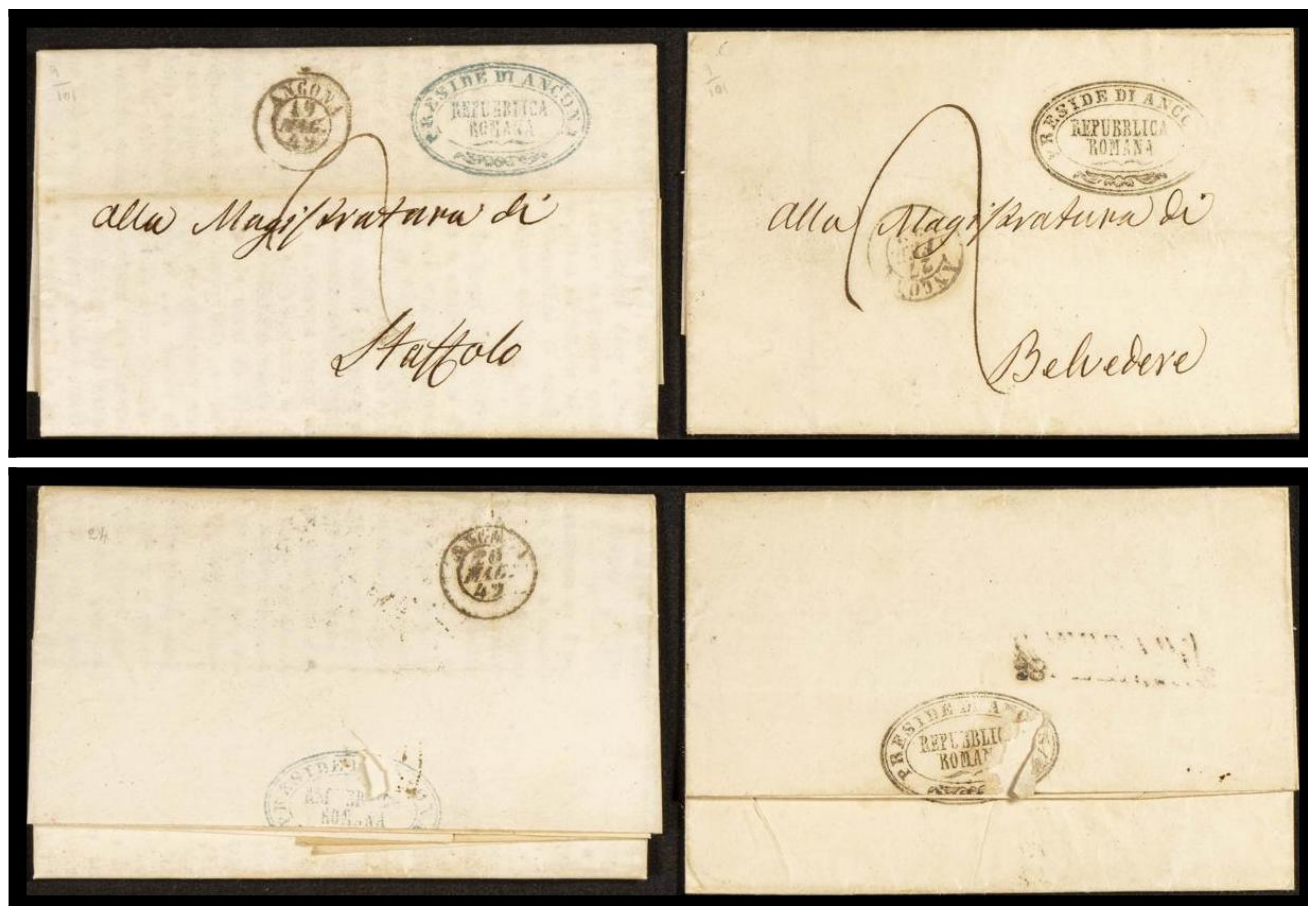 9
101
ANCONA
19
MAG.
49
PRESIDE DI ANCONA
REPUBBLICA
ROMANA
alla Magistratura di
Staffolo
9
101
PRESIDE DI ANCO
REPUBBLICA
ROMANA
alla Magistratura di
ANCONA
27
Belvedere
24
ANCONA
20
MAG.
49
PRESIDE
REPUBBLICA
ROMANA
PRESIDE DI ANCO
REPUBBLICA
ROMANA